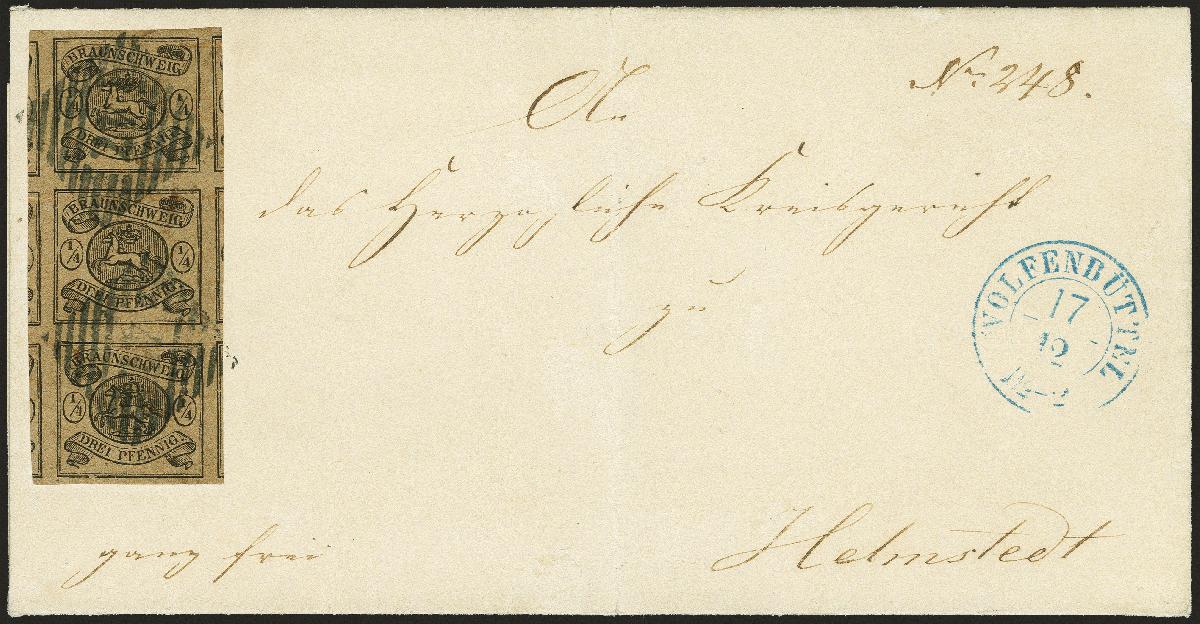 BRAUNSCHWEIG
1/4 1/4
DREI PFENNIG
BRAUNSCHWEIG
1/4 1/4
DREI PFENNIG
BRAUNSCHWEIG
1/4 1/4
DREI PFENNIG
No 248.
An
das Herzogliche Kreisgericht
zu
Helmstedt
ganz frei
WOLFENBÜTTEL
17
12